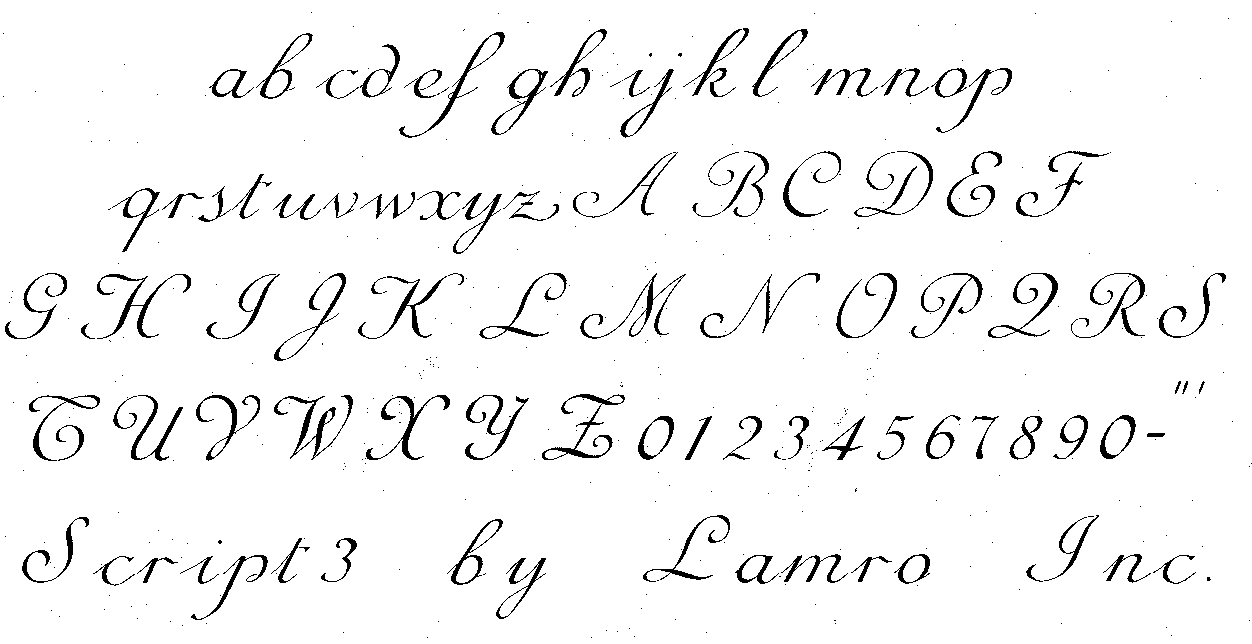 ab cdef gh ijkl mnop
qrstuvwxyz A B C D E F
G H I J K L M N O P Q R S
T U V W X Y Z 01234567890-"'
Script3 by Lamro Inc.